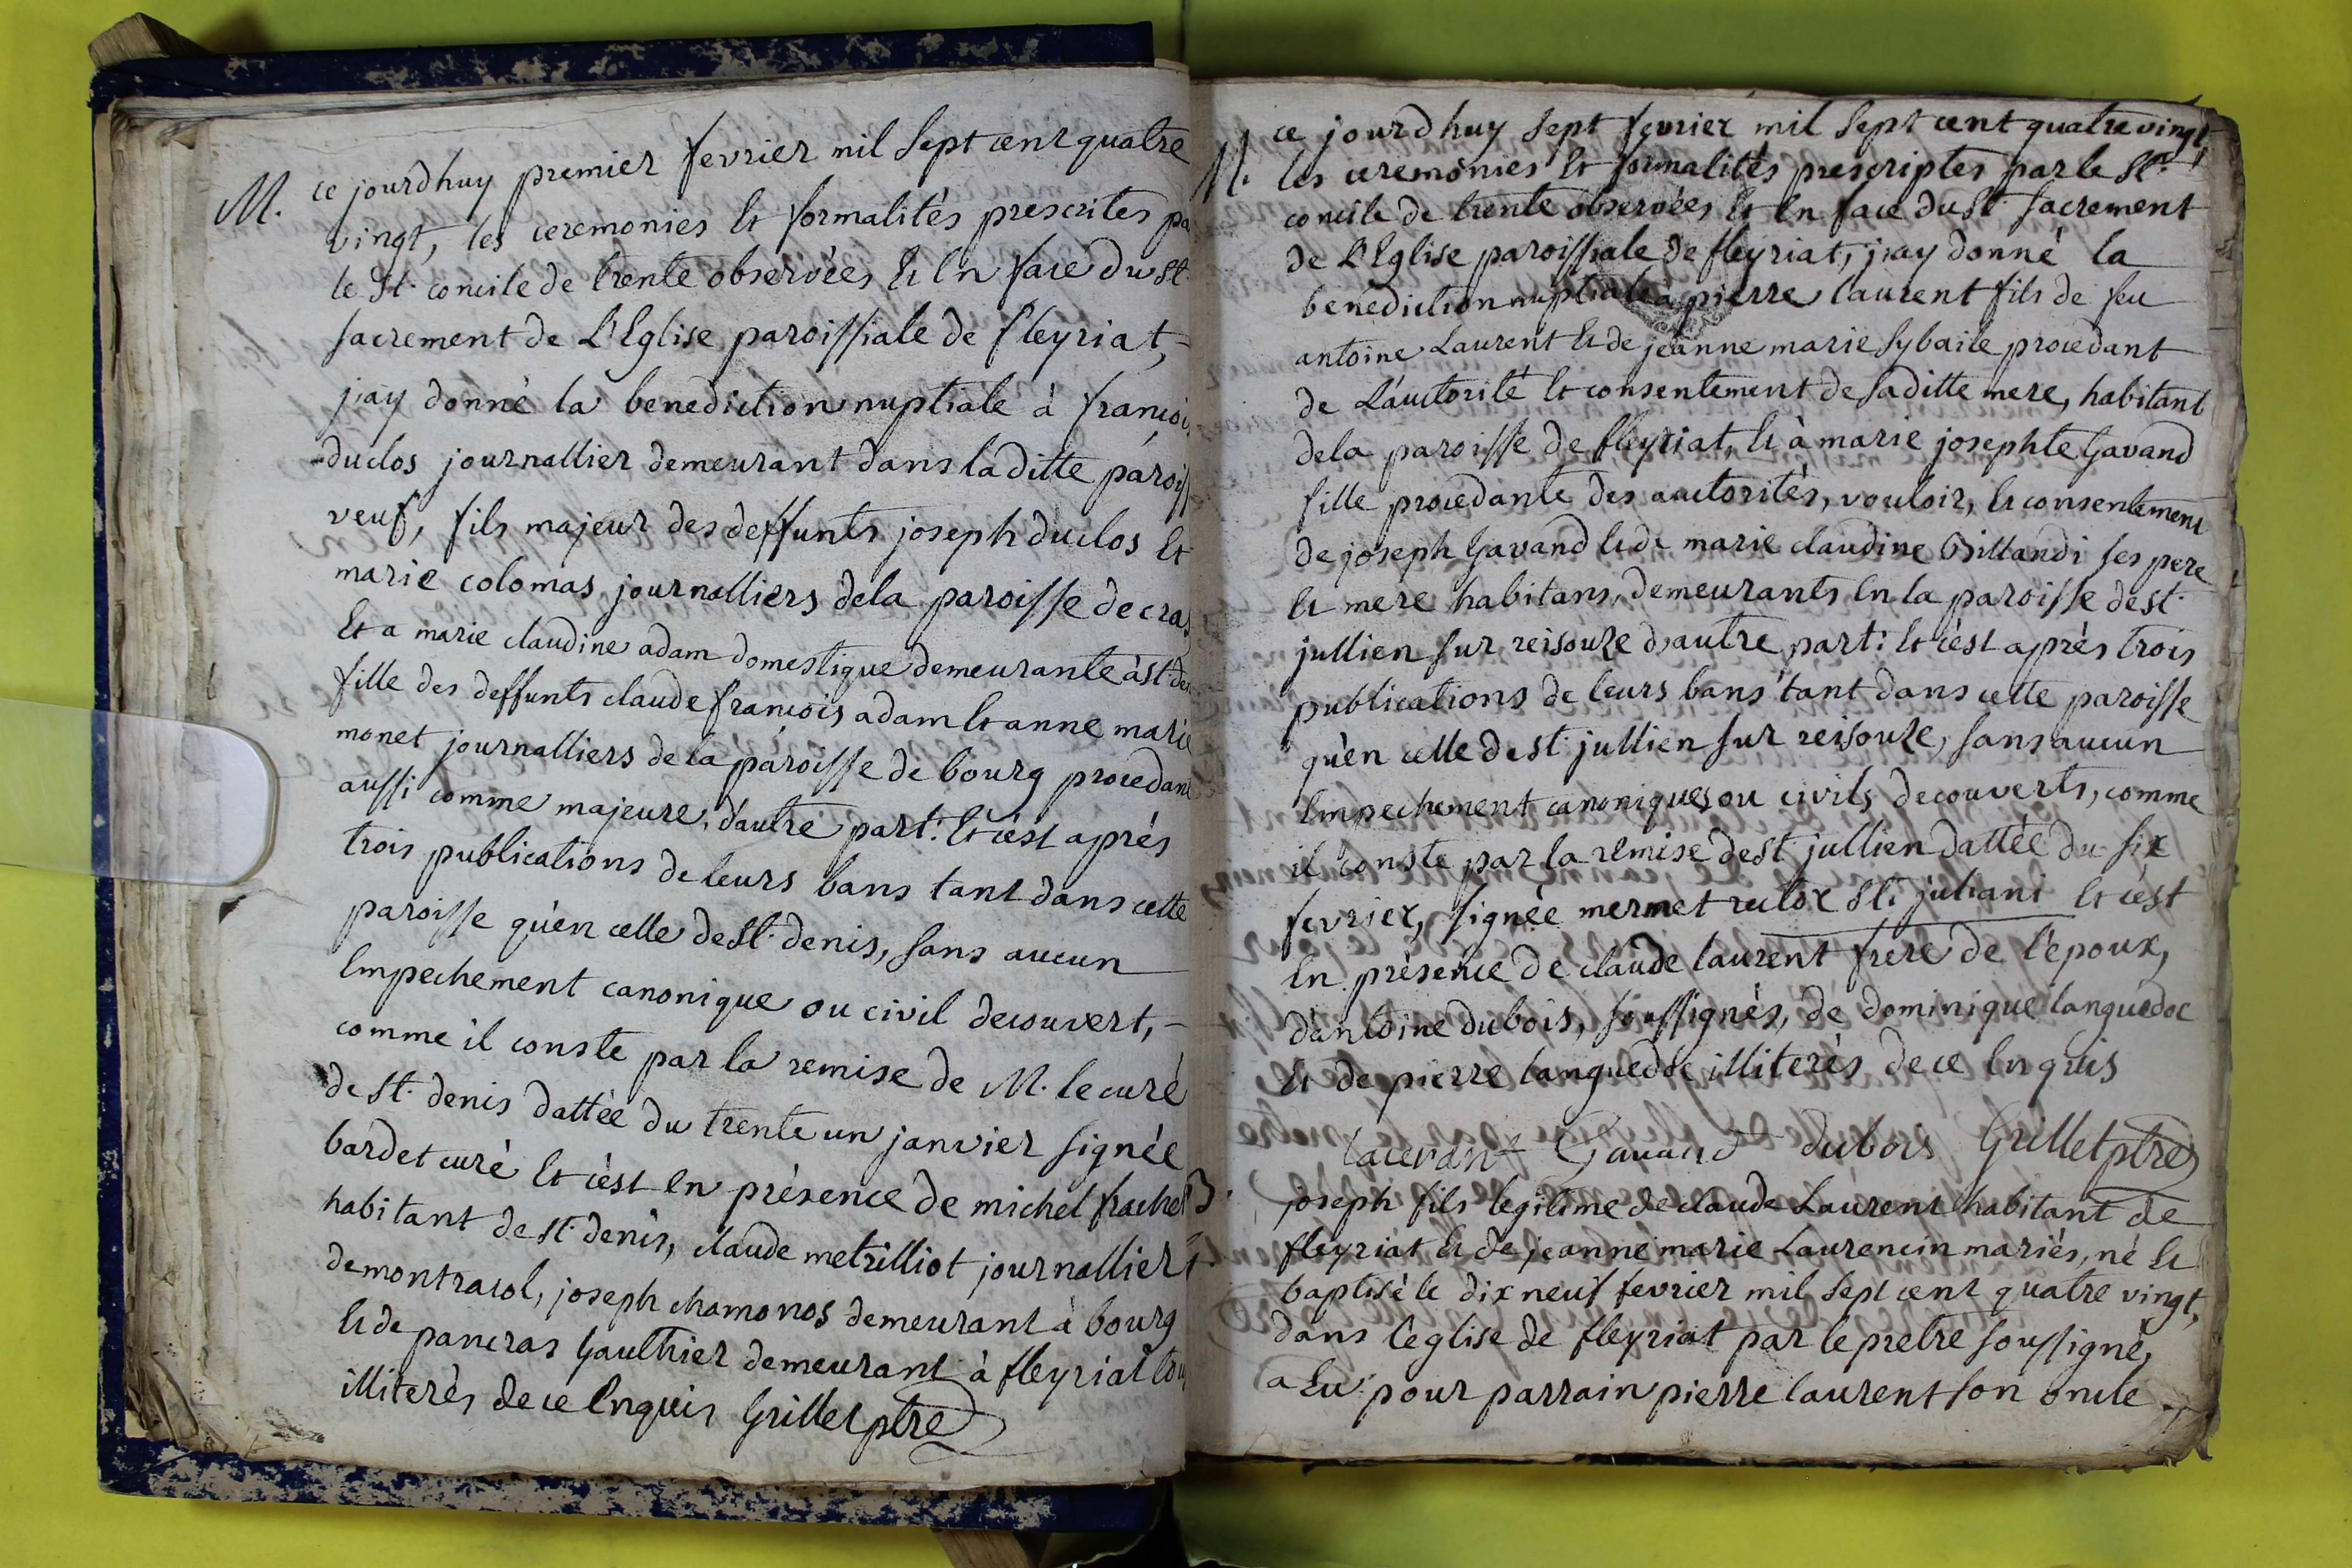 M. ce jourdhuy premier fevrier mil sept cent quatre
vingt, les ceremonies et formalités prescrites pa
le St. concile de trente observées et en face du St.
sacrement de l'Eglise paroissiale de fleyriat,
j'ay donné la benediction nuptiale à francois
duclos journallier demeurant dans laditte paroiss
veuf, fils majeur des deffunts joseph duclos et
marie colomas journalliers dela paroisse de cras
Et a marie claudine adam domestique demeurante à St. den
fille des deffunts claude francois adam et anne marie
monet journalliers de la paroisse de bourg procedant
aussi comme majeure, d'autre part: Et c'est après
trois publications de leurs bans tant dans cette
paroisse qu'en celle de St. denis, sans aucun
Empechement canonique ou civil decouvert,
comme il conste par la remise de M. le curé
de St. denis dattée du trente un janvier signée
bardet curé Et c'est en présence de michel frachet
habitant de St. denis, claude metrilliot journallier
de montracol, joseph chamonos demeurant à bourg
Et de pancras Gaulthier demeurant à fleyriat tou
illiterès de ce Enquis Grillet ptre
M. ce jourdhuy sept fevrier mil sept cent quatre vingt
les ceremonies et formalités prescriptes par le St.
concile de trente observées et en face du St. sacrement
de l'Eglise paroissiale de fleyriat, j'ay donné la
benediction nuptiale à pierre laurent fils de feu
antoine Laurent et de jeanne marie sybaile procedant
de L'autorité et consentement de saditte mere, habitant
dela paroisse de fleyriat, et à marie josephte Gavand
fille procedante des autorités, vouloir, et consentement
de joseph Gavand et de marie claudine Billandi ses pere
et mere habitans, demeurants En la paroisse de st.
jullien sur reisouze d'autre part: Et c'est après trois
publications de leurs bans tant dans cette paroisse
qu'en celle de st. jullien sur reisouze, sans aucun
Empechement canoniques ou civils decouverts, comme
il conste par la remise de st. jullien dattée du six
fevrier, signée mermet rector Sti. juliani Et c'est
En présence de claude laurent frere de l'epoux,
d'antoine dubois, soussignés, de dominique languedoc
Et de pierre languedoc illiterès de ce Enquis
laurant Gavand dubois Grillet ptre
B. joseph fils legitime de claude Laurent habitant de
fleyriat et de jeanne marie Laurencin mariés, né et
baptisé le dix neuf fevrier mil sept cent quatre vingt,
dans l'eglise de fleyriat par le pretre soussigné,
a Eu pour parrain pierre laurent son oncle